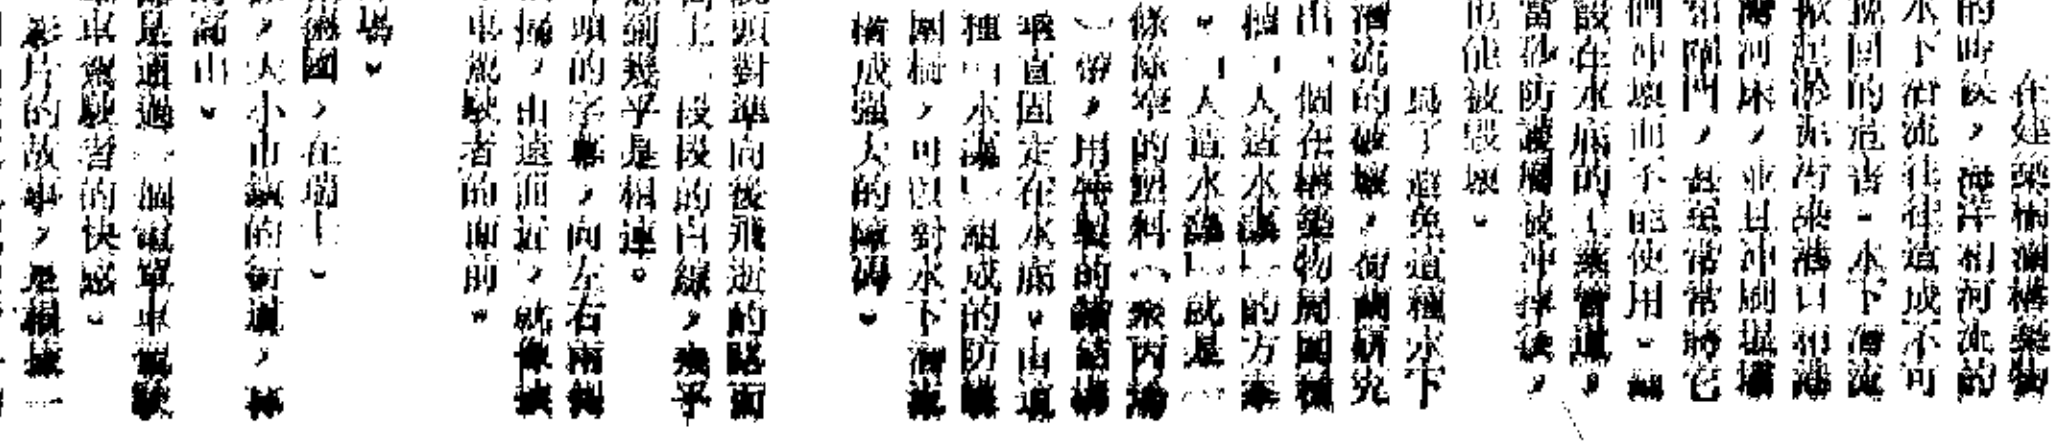 在建築構築物
的時候，海洋和河流的
水下潛流往往造成不可
挽回的危害。水下潛流
掀起淤泥污染港口和港
灣河床，並且冲刷堤壩
和閘門，甚至常常將它
們冲壞而不能使用。鋪
設在水底的工業管道，
當砂防護層被冲掉後，
也能被毀壞。
爲了避免這種水下
潛流的破壞，荷蘭研究
出一個在構築物周圍種
植「人造水藻」的方案
。「人造水藻」就是一
條條窄的塑料（聚丙烯
）帶，用特製的錨結構
垂直固定在水底。由這
種「水藻」組成的防護
圍檣，可以對水下潛流
構成强大的障碍。
頭對準向後飛逝的路面
上一段段的白線，幾乎
前幾乎是相連。
頭的字幕，向左右兩側
掃，由遠而近，就像被
車駕駛者的面前。
場。
國，在瑞士。
，大小市鎮的街道，林
高山。
是通過一個電單車駕駛
車駕駛者的快感。
影片的故事，是根據一